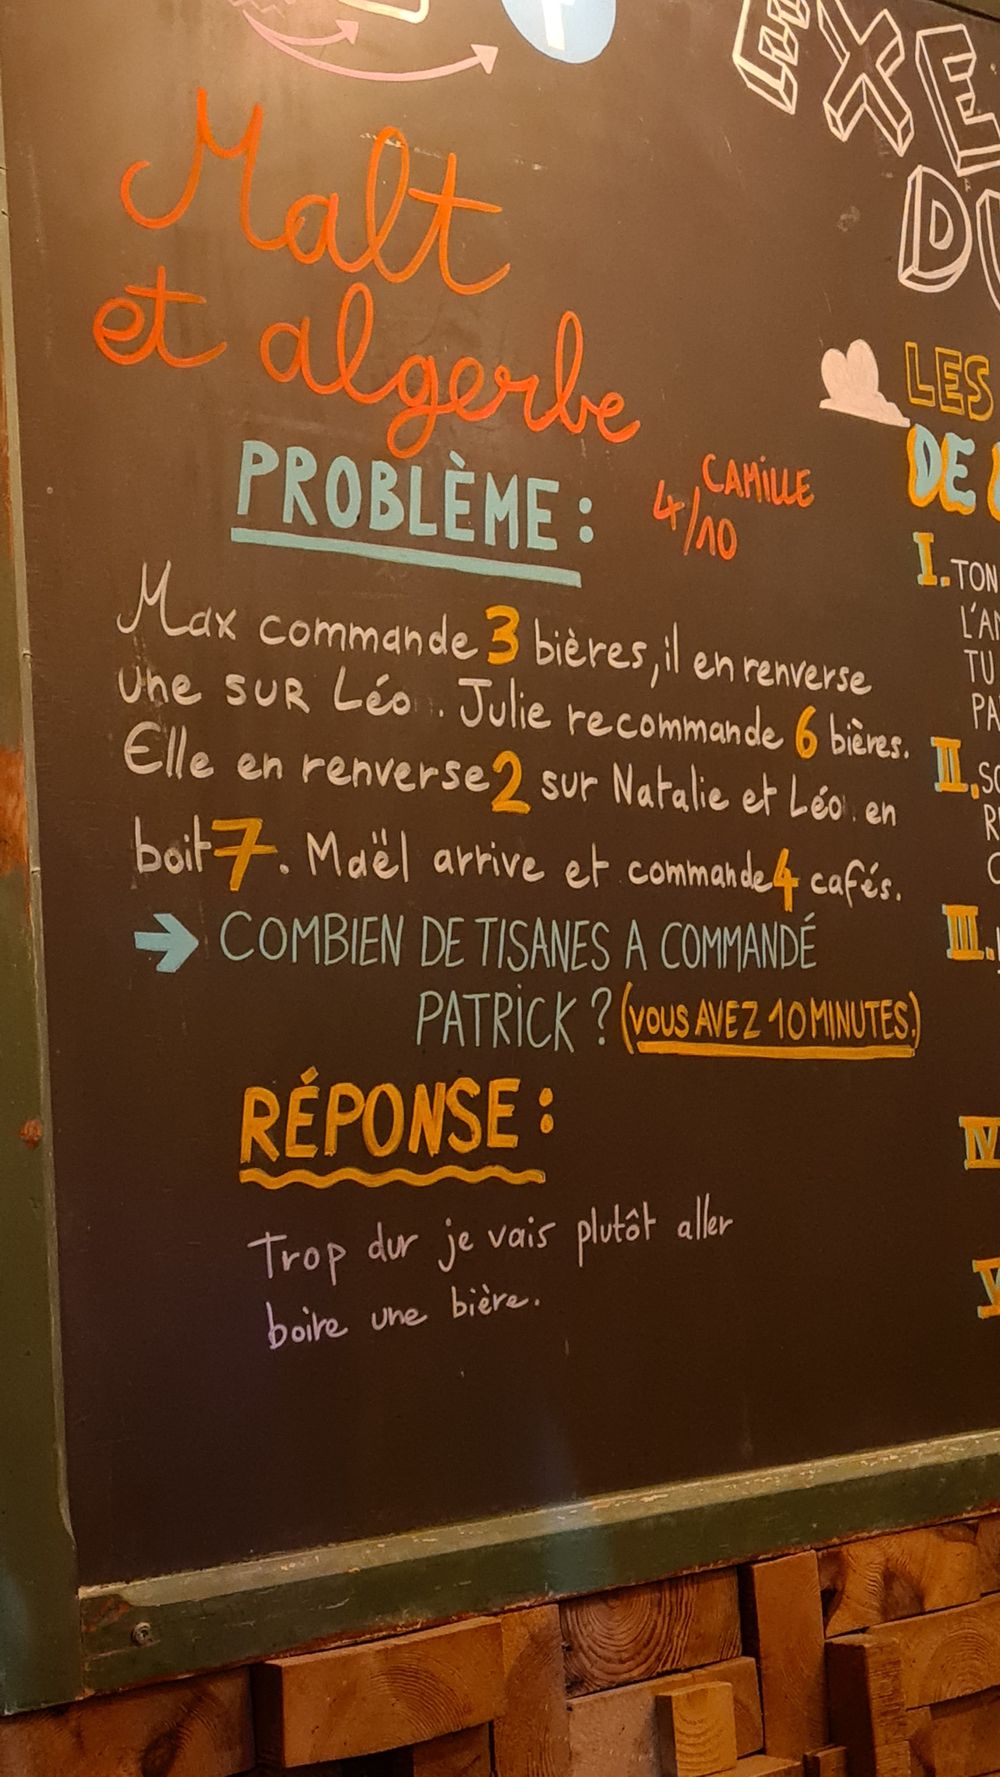 Malt
et algerbe
PROBLÈME :
CAMILLE
4/10
Max commande 3 bières, il en renverse
une SUR Léo. Julie recommande 6 bières.
Elle en renverse 2 sur Natalie et Léo en
boit 7. Maël arrive et commande 4 cafés.
→ COMBIEN DE TISANES A COMMANDÉ
PATRICK ? (VOUS AVEZ 10 MINUTES.)
RÉPONSE :
Trop dur je vais plutôt aller
boire une bière.
EXE
DU
LES
DE
I. TON
L'A
TU
PA
II. SO
R
C
III.
IV
V